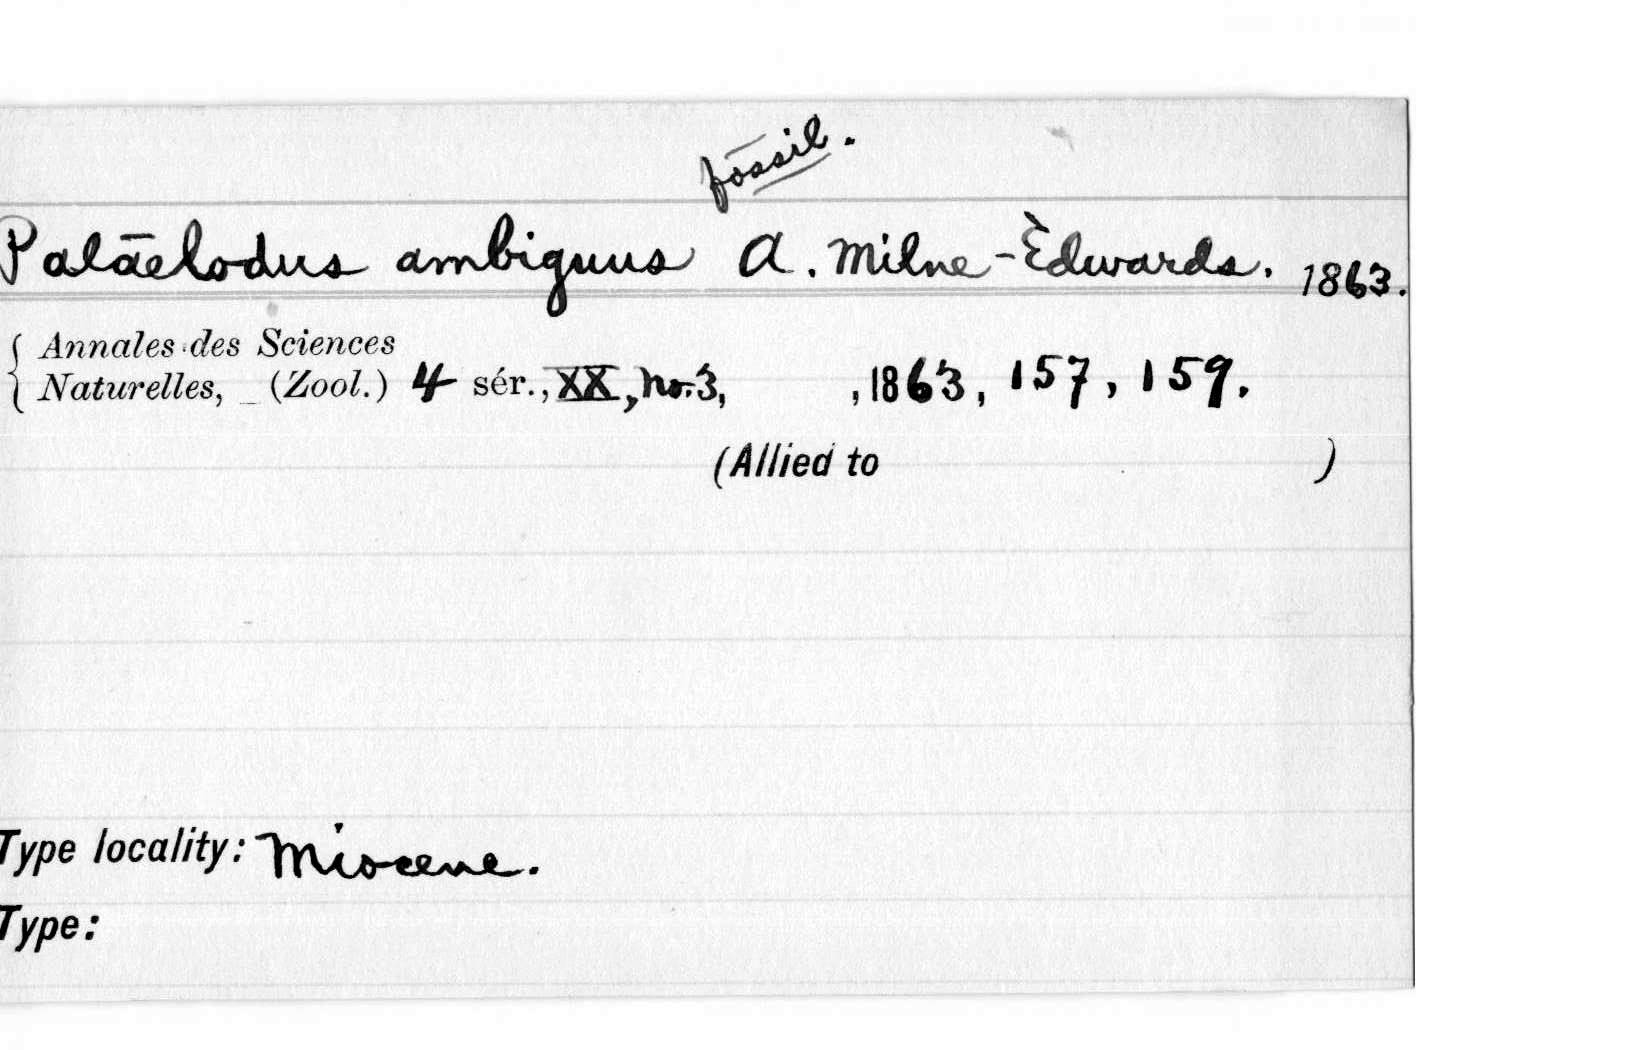 fossil.
Palaelodus ambiguus A. Milne-Èdwards. 1863.
Annales des Sciences
Naturelles, (Zool.) 4 sér., XX, No. 3, , 1863, 157, 159.
(Allied to )
Type locality: Miocene.
Type: